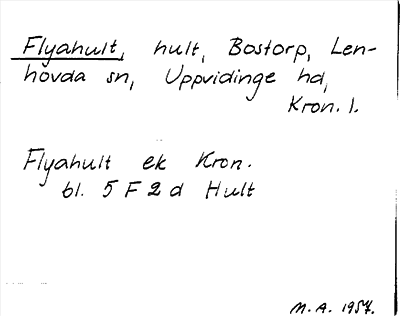 Flyahult, hult, Bostorp, Len-
hovda sn, Uppvidinge hd,
Kron. l.
Flyahult ek Kron.
bl. 5 F 2 d Hult
M.A. 1957.